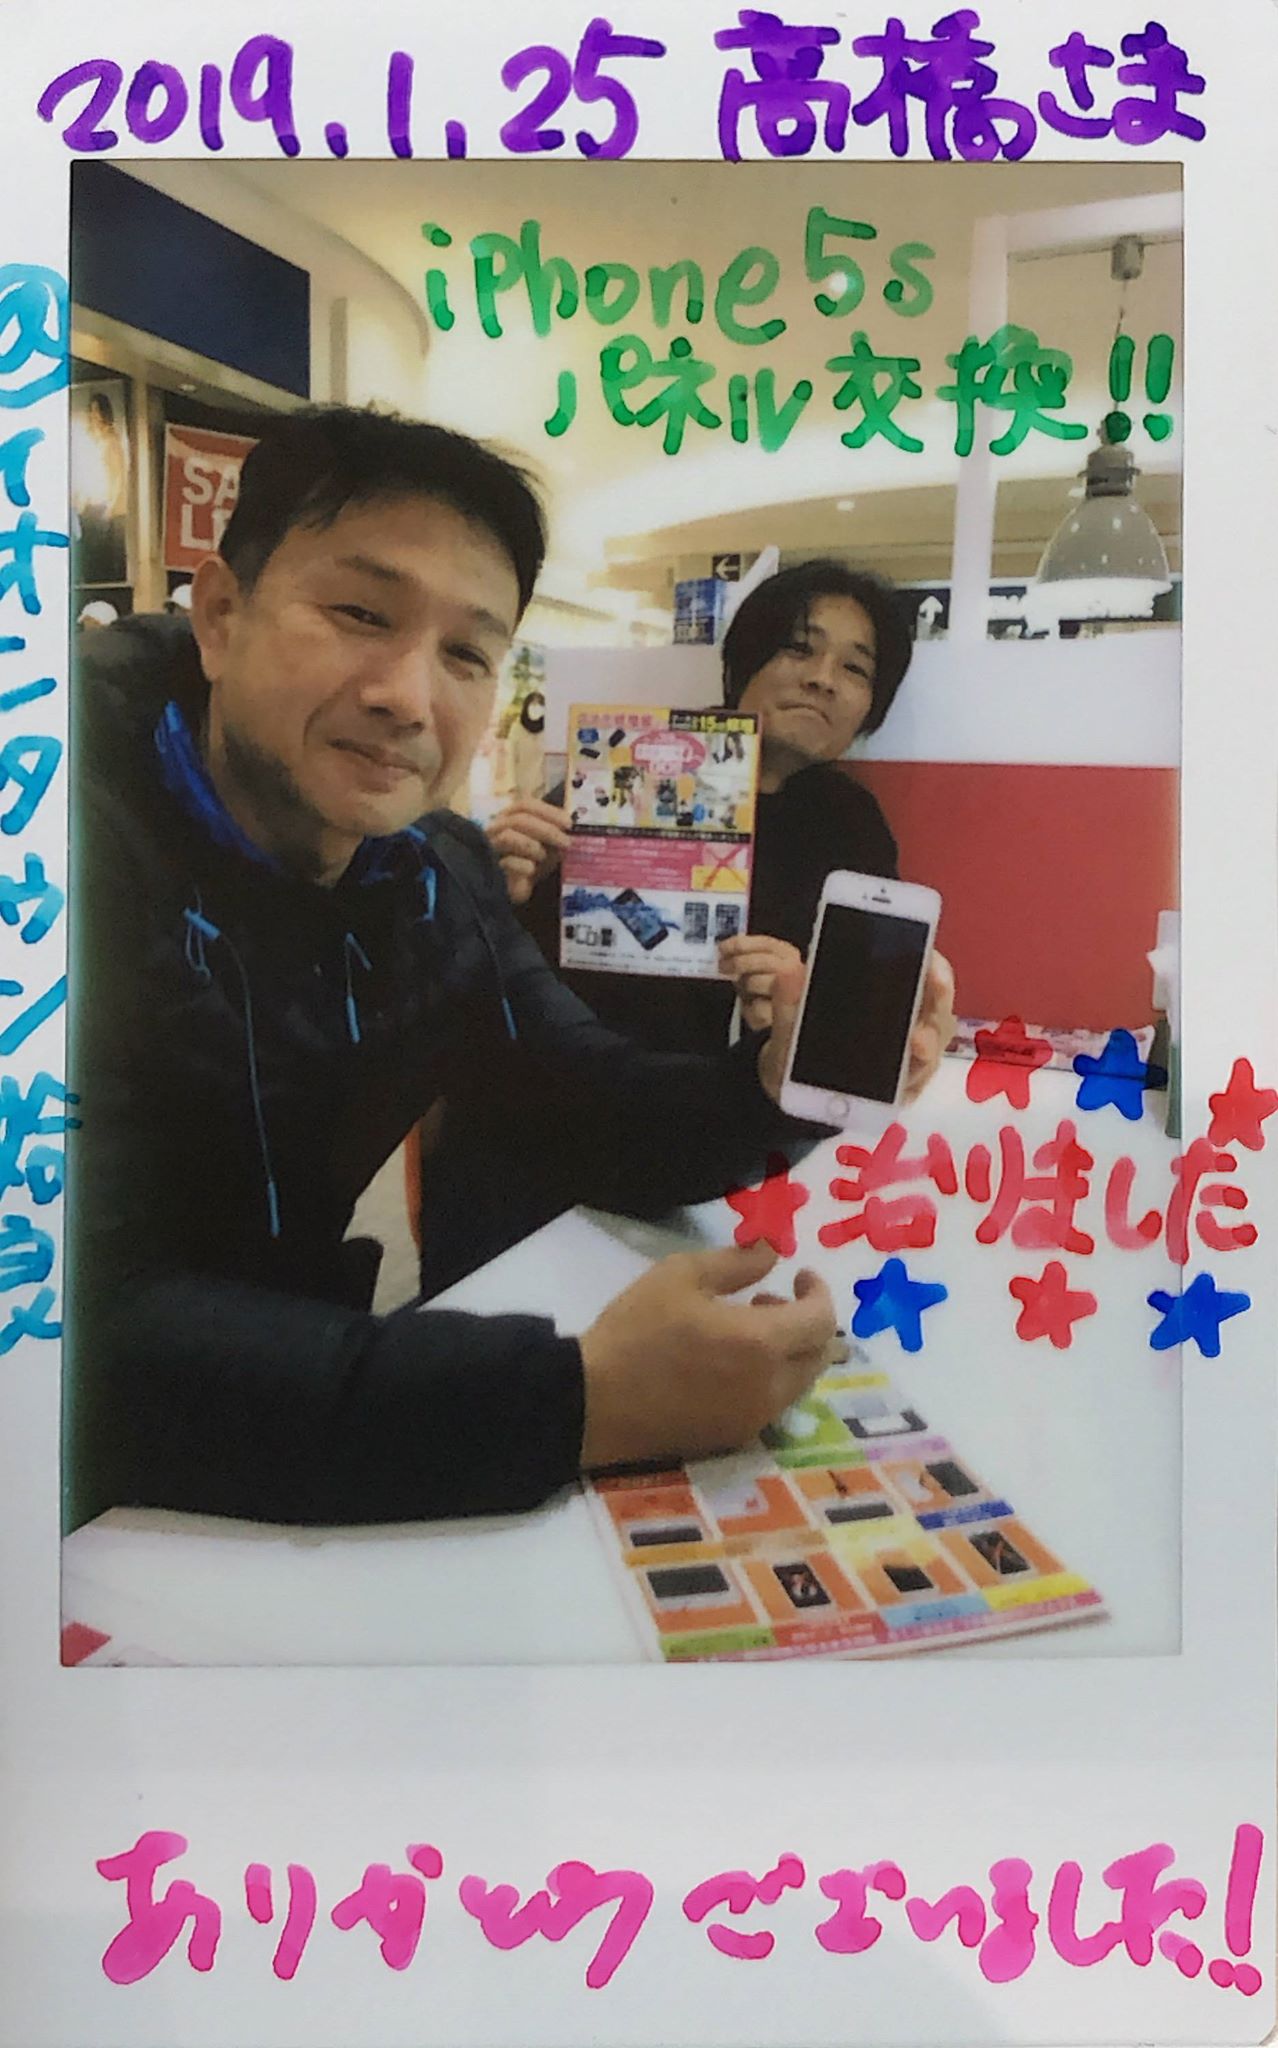 2019.1.25 高橋さま
iPhone5s
パネル交換!!
@イオンタウン姶良
SA
LE
15分修理
治りました
ありがとうございました!